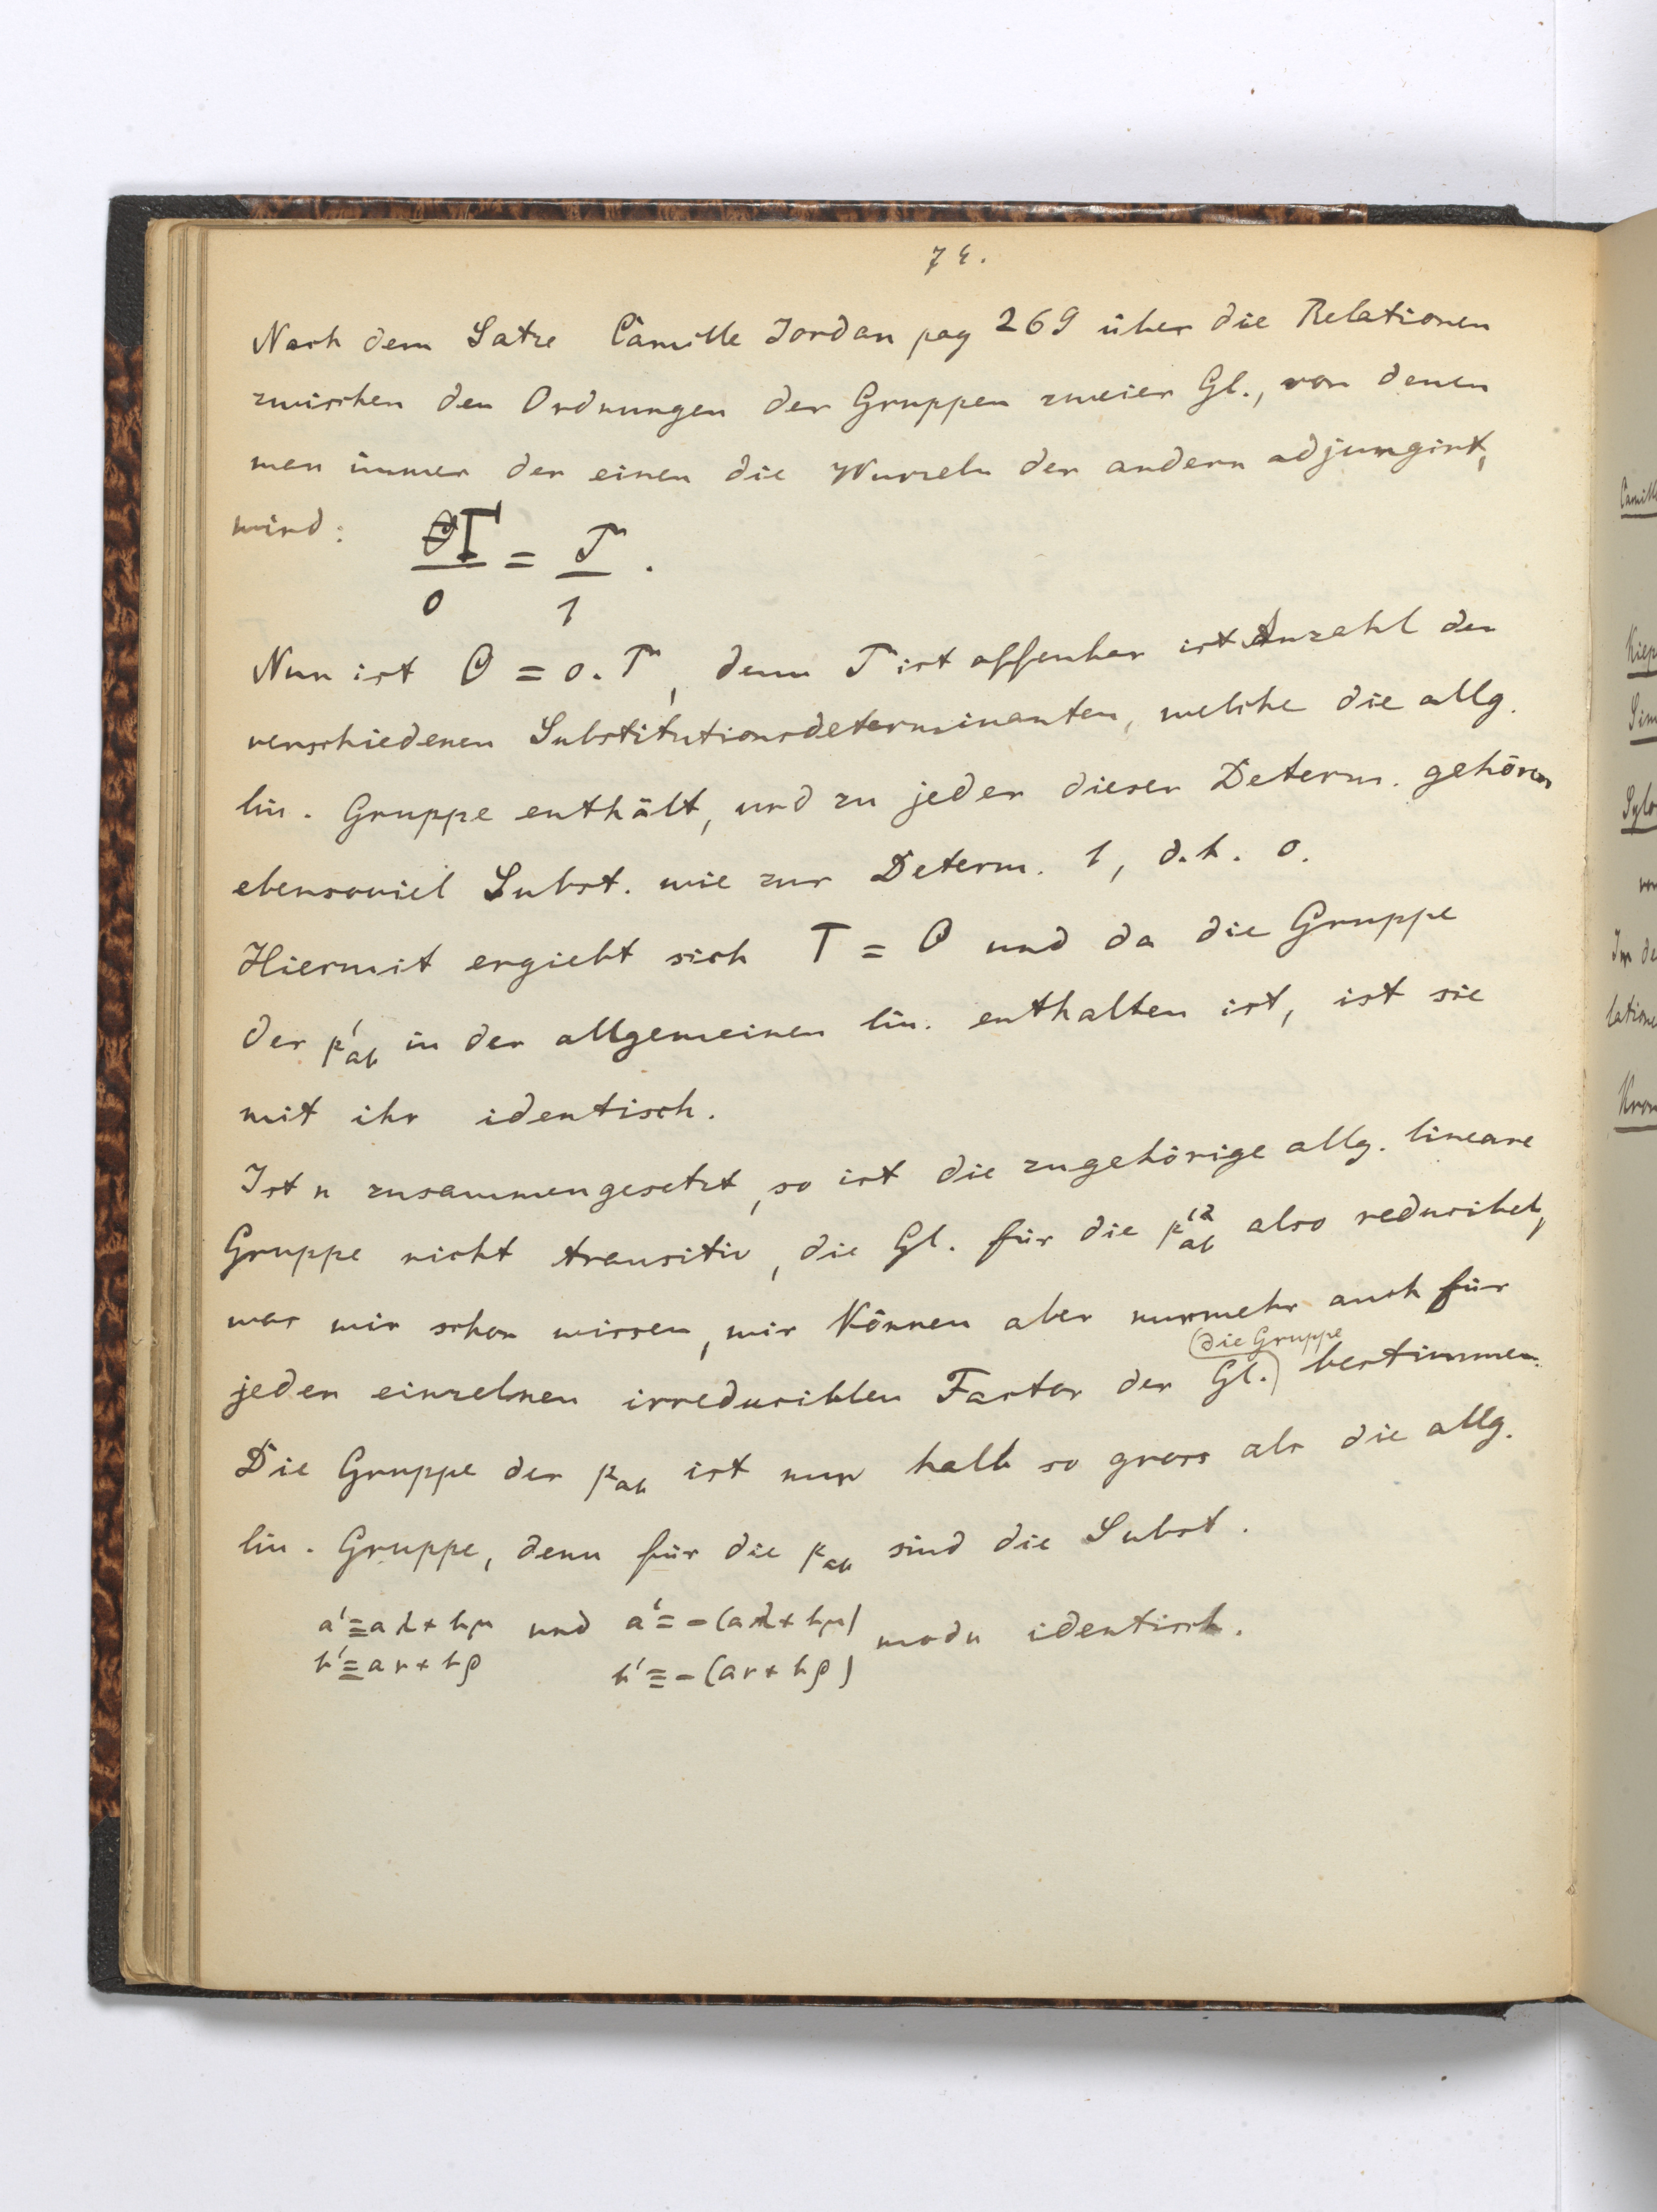 74.
Nach dem Satze Camille Jordan pag 269 über die Relationen
zwischen den Ordnungen der Gruppen zweier Gl., von denen
man immer der einen die Wurzeln der andern adjungirt,
wird: T/o = 𝒯/1 .
Nun ist O = o. 𝒯, denn 𝒯 ist offenbar ist Anzahl der
verschiedenen Substitutionsdeterminanten, welche die allg.
lin. Gruppe enthält, und zu jeder dieser Determ. gehören
ebensoviel Subst. wie zur Determ. 1, d.h. o.
Hiermit ergiebt sich T = O und da die Gruppe
der p'ab in der allgemeinen lin. enthalten ist, ist sie
mit ihr identisch.
Ist n zusammengesetzt, so ist die zugehörige allg. lineare
Gruppe nicht transitiv, die Gl. für die p'²ab also reducibel,
was wir schon wissen, wir können aber nunmehr auch für
jeden einzelnen irreduciblen Factor der Gl. die Gruppe bestimmen.
Die Gruppe der pab ist nur halb so gross als die allg.
lin. Gruppe, denn für die pab sind die Subst.
a' ≡ aλ + bμ und a' ≡ -(aλ + bμ) modn identisch.
b' ≡ aν + bρ b' ≡ -(aν + bρ)
Camill
Sylo
Im de
latione
Kron